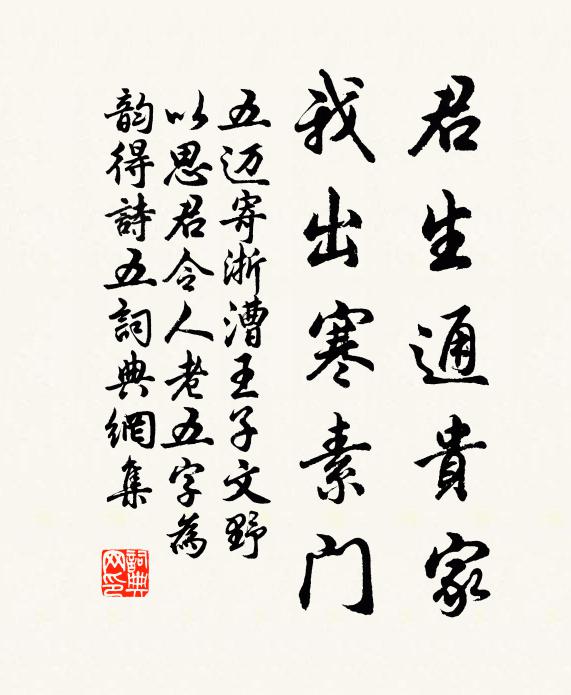 君生通貴家
我出寒素门
五迈寄浙漕王子文野
以思君令人老五字為
韵得詩五詞典網集
詞典网印